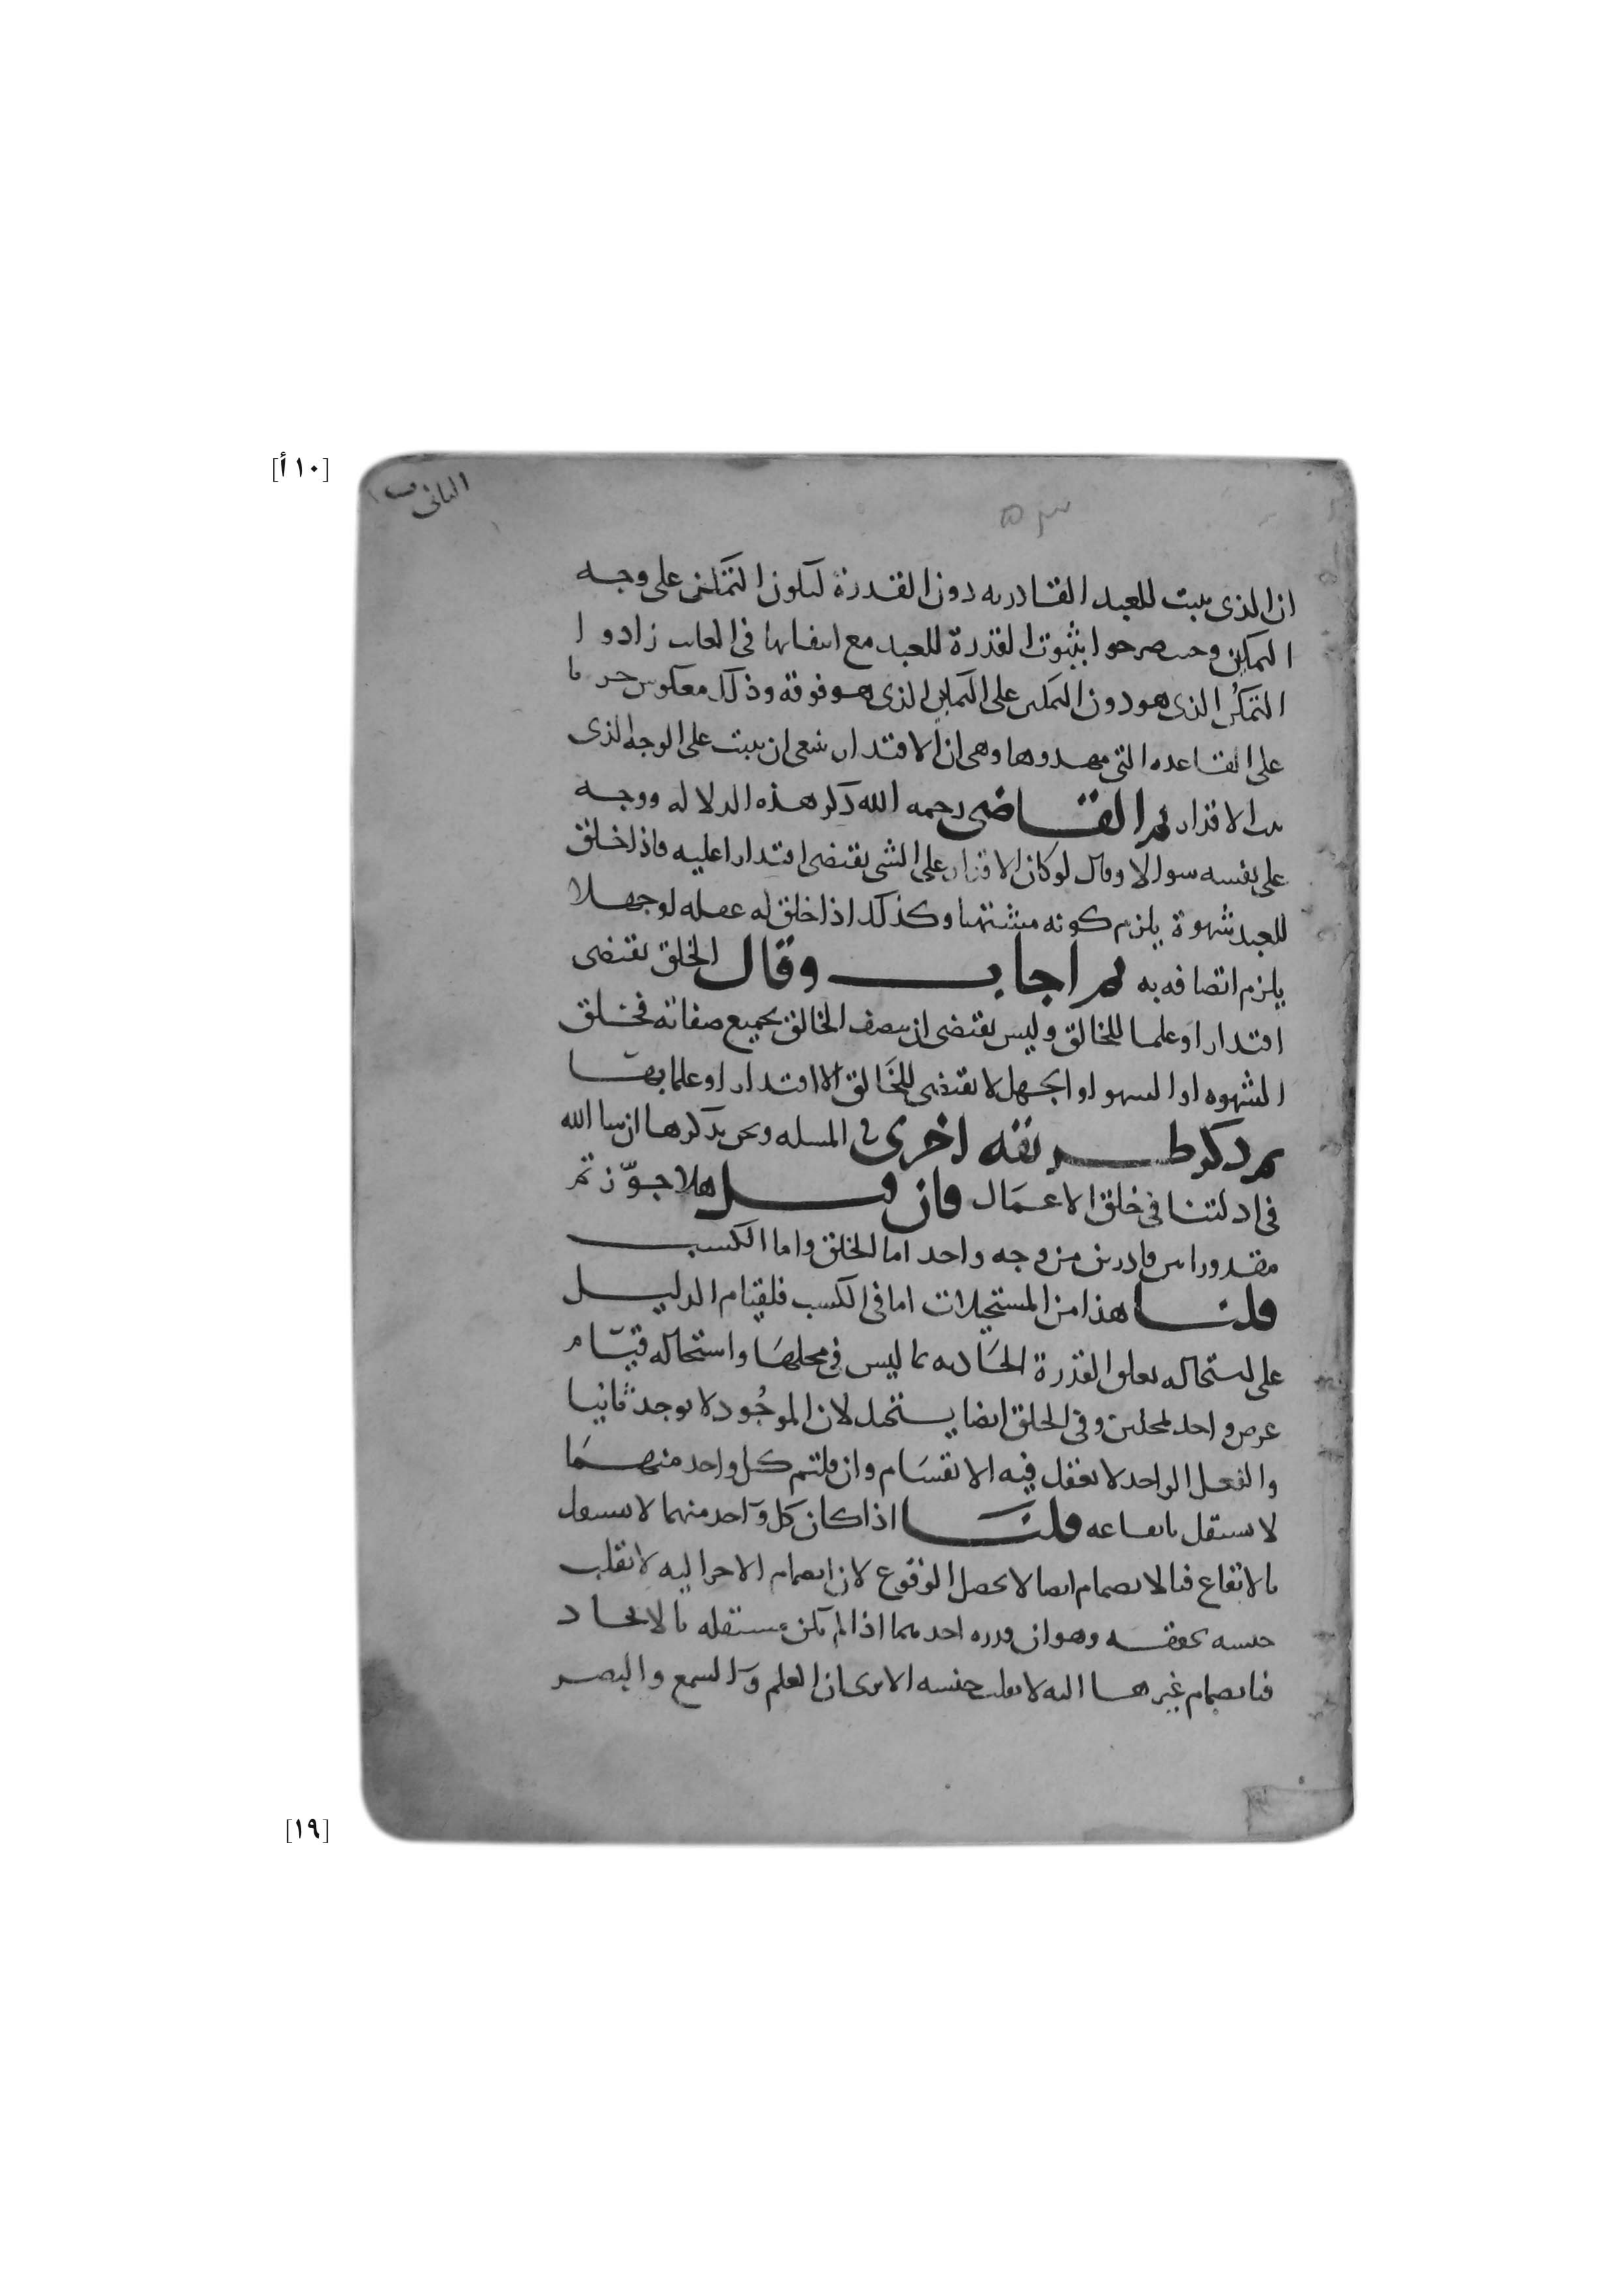 [١٠ أ]
الثانى
ان الذى يثبت للعبد القادريه دون القدرة ليكون التمكن على وجه
التمكين وحين صرحوا بثبوت القدرة للعبد مع انتفائها فى الغايب زادوا
التمكن الذى هو دون التمكين على التمكين الذى هو فوقه وذلك معكوس جريا
على القاعده التى مهدوها وهى ان الاقتدار ينبغى ان يثبت على الوجه الذى
يثبت الاقدار ثم القاضى رحمه الله ذكر هذه الدلاله ووجه
على نفسه سوالا وقال لو كان الاقدار على الشى يقتضى اقتدارا عليه فاذا خلق
للعبد شهوة يلزم كونه مشتهيا وكذلك اذا خلق له غفله او جهلا
يلزم اتصافه به ثم اجاب وقال الخلق يقتضى
اقتدارا وعلما للخالق وليس يقتضى ان يتصف الخالق بجميع صفاته فخلق
الشهوه او السهو او الجهل لا يقتضى للخالق الا اقتدارا وعلما بها
ثم ذكر طريقه اخرى فى المسله ونحن نذكرها ان شا الله
فى ادلتنا فى خلق الاعمال فان قيل هلا جوّزتم
مقدورا بين قادرين من وجه واحد اما الخلق واما الكسب
قلنا هذا من المستحيلات اما فى الكسب فلقيام الدليل
على استحاله تعلق القدرة الحادثه بما ليس فى محلها واستحاله قيام
عرض واحد بمحلين وفى الخلق ايضا يستحيل لان الموجود لا يوجد ثانيا
والفعل الواحد لا يعقل فيه الانقسام وان قلتم كل واحد منهما
لا يستقل بايقاعه قلنا اذا كان كل واحد منهما لا يستقل
بالايقاع فبالانضمام ايضا لا يحصل الوقوع لان انضمام الاخر اليه لا يقلب
جنسه يحققه وهو ان قدره احدهما اذا لم تكن مستقله بالايجاد
فبانضمام غيرها اليه لا يقلب جنسه الا ترى ان العلم والسمع والبصر
[١٩]